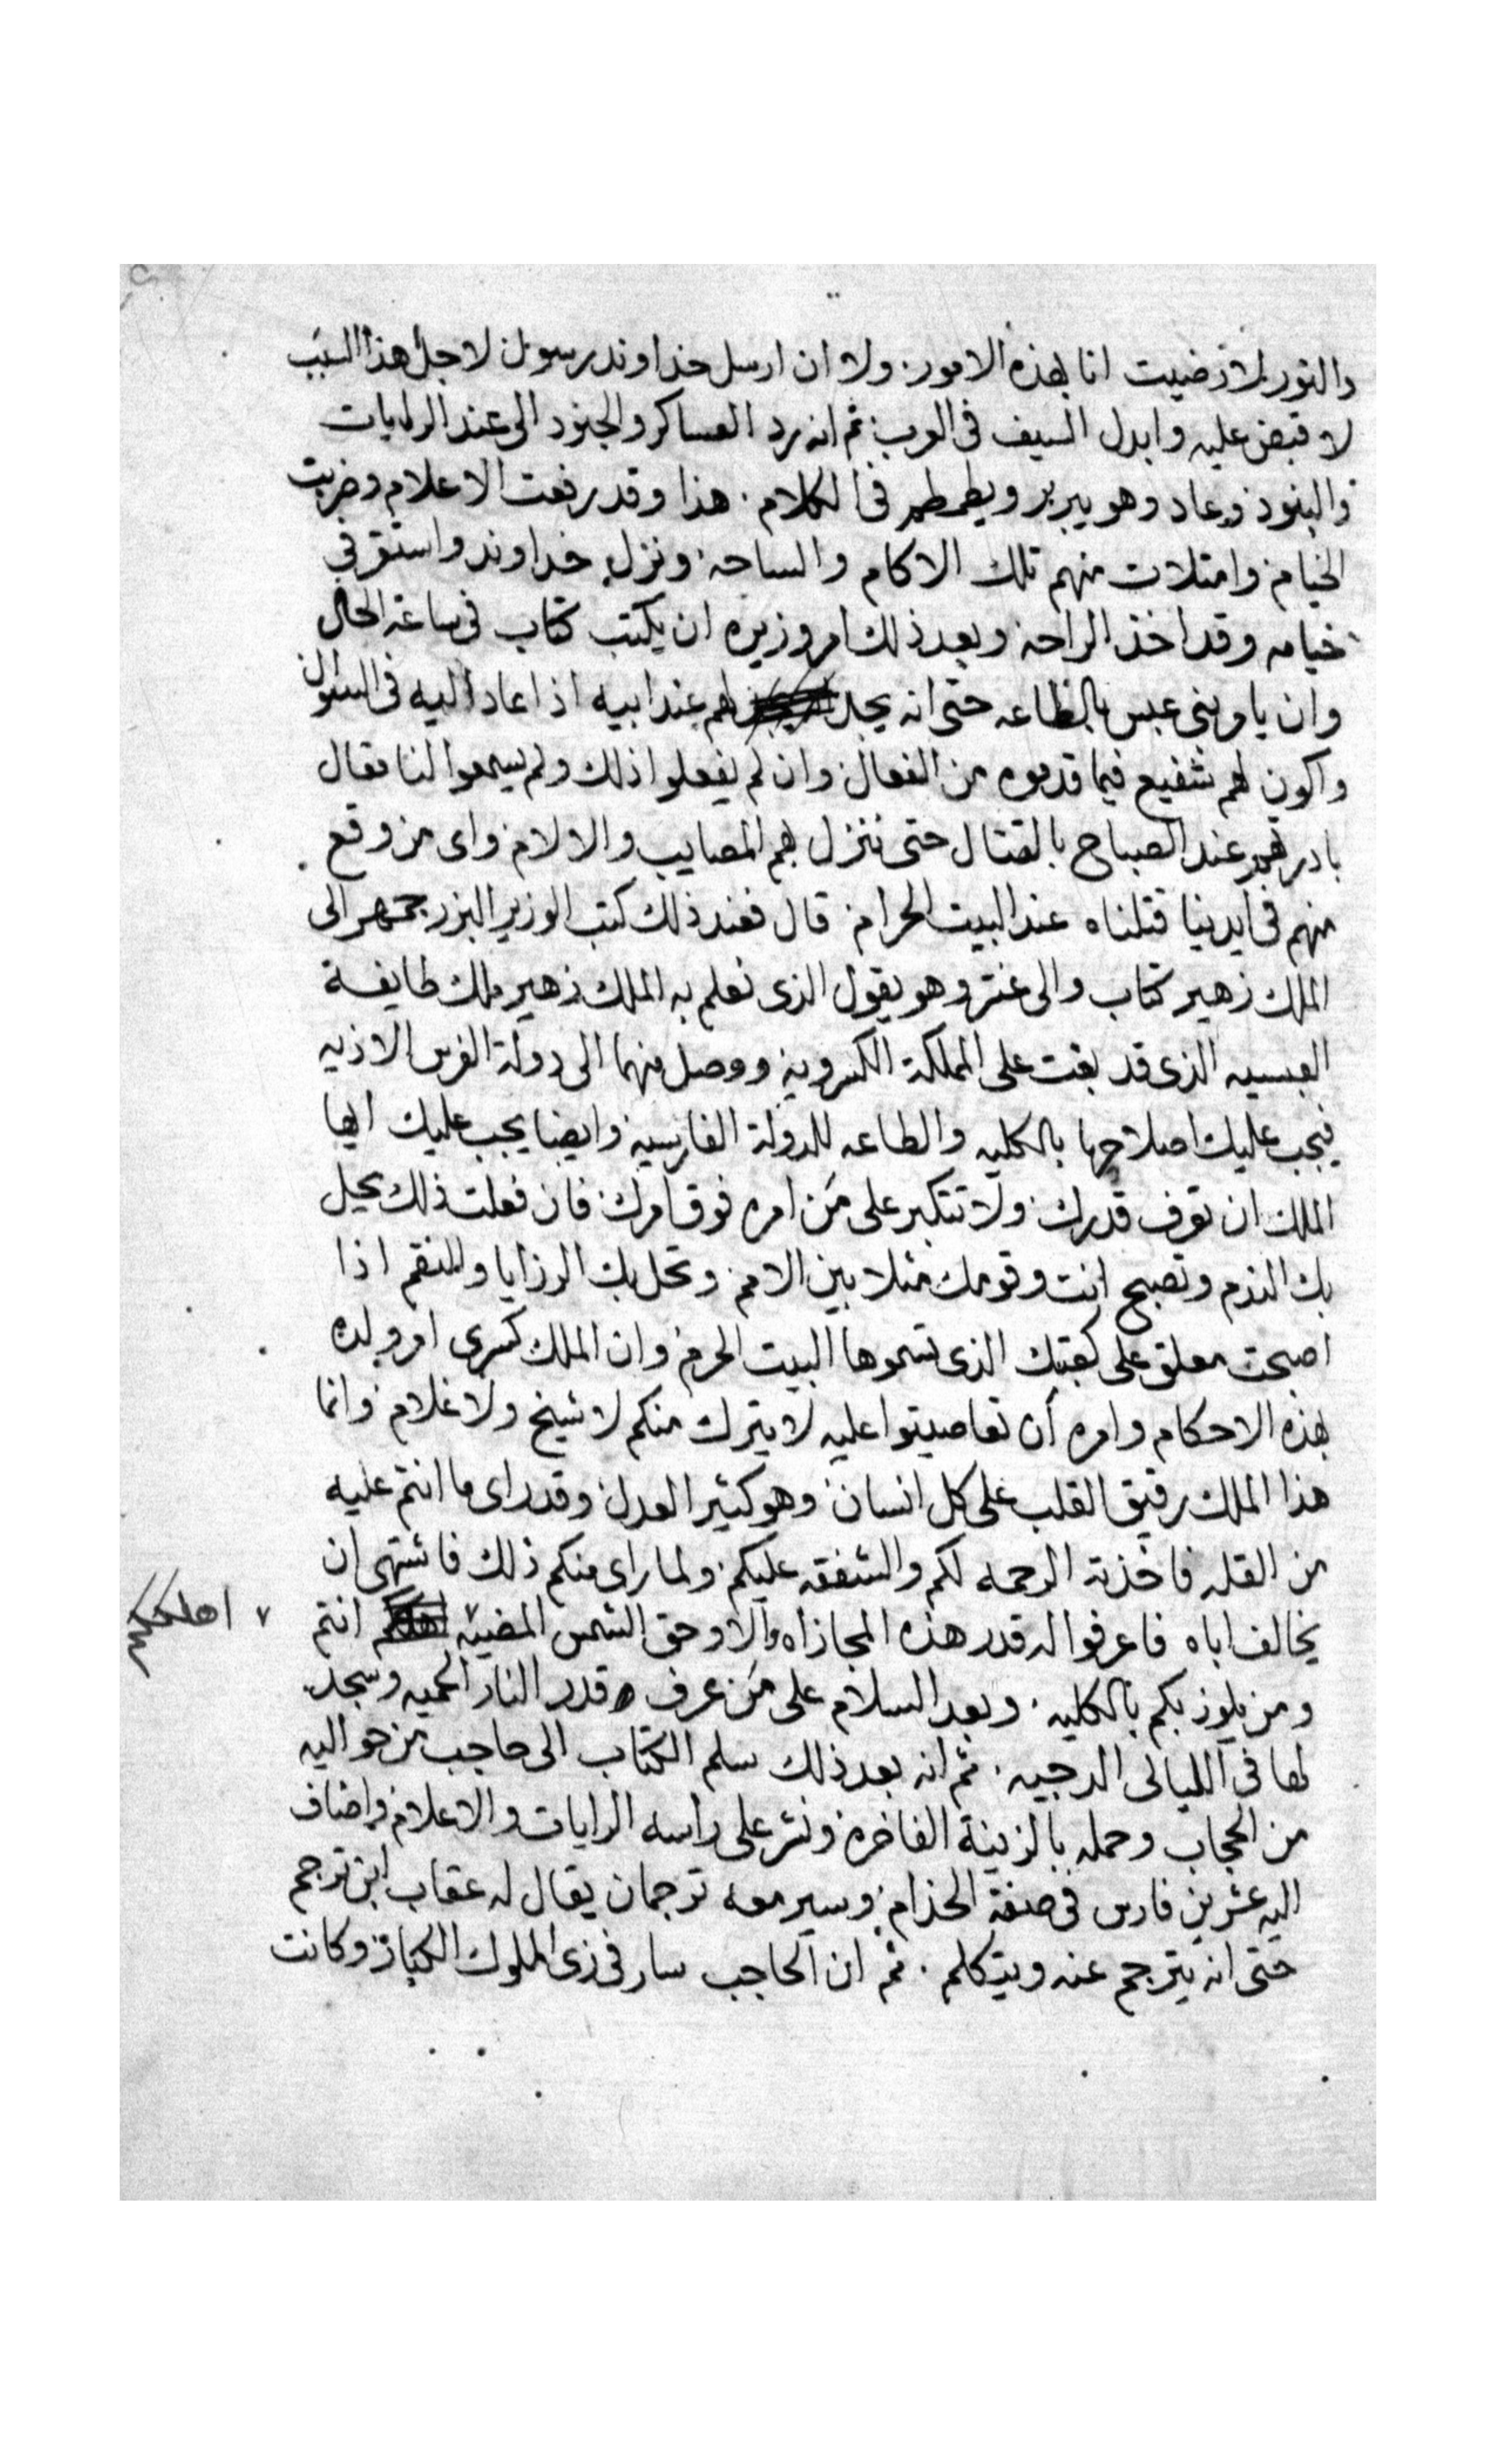 والنور لا رضيت انا بهذه الامور. ولا ان ارسل خداوند رسول لاجل هذا السبب
لا قبض عليه وابدل السيف فى العرب ثم انه رد العساكر والجنود الى عند الرايات
والبنود وعاد وهو يبربر ويطمطم فى الكلام. هذا وقد رفعت الاعلام وضربت
الخيام وامتلات منهم تلك الاكام والساحه ونزل خداوند واستقر في
خيامه وقد اخذ الراحه وبعد ذلك امر وزيره ان يكتب كتاب فى ساعة الحال
وان يامر بنى عبس بالطاعه حتى انه يجد لهم عند ابيه اذا عاد اليه فى السوال
واكون لهم شفيع فيما قدموه من الفعال وان لم يفعلوا ذلك ولم يسمعوا لنا مقال
بادرهم عند الصباح بالقتال حتى ننزل بهم المصايب والالام واى من وقع
منهم فى ايدينا قتلناه عند البيت الحرام قال فعند ذلك كتب الوزير البزرجمهر الى
الملك زهير كتاب والى عنتر وهو يقول الذى نعلم به الملك زهير ملك طايفة
العبسيه الذى قد بغت على المملكة الكسرويه ووصل منها الى دولة الفرس الاذيه
فيجب عليك اصلاحها بالكليه والطاعه للدولة الفارسيه وايضا يجب عليك ايها
الملك ان تعرف قدرك ولا تتكبر على مَن امره فوق امرك فان فعلت ذلك يحل
بك الندم وتصبح انت وقومك مثلا بين الامم وتحل بك الرزايا والنقم اذا
اصبحت معلق على كعبتك الذى تسموها البيت الحرم وان الملك كسرى امر ولده
بهذه الاحكام وامره أن تعاصيتوا عليه لا يترك منكم لا شيخ ولا غلام وانما
هذا الملك رقيق القلب على كل انسان وهو كثير العدل وقد راى ما انتم عليه
من القله فاخذته الرحمه لكم والشفقه عليكم ولما راى منكم ذلك فاشتهى ان
يخالف اباه فاعرفوا له قدر هذه المجازاه والا وحق الشمس المضيه انتم ٧ اهلككم
ومن يلوذ بكم بالكليه. وبعد السلام على مَن عرف قدر النار الحميه وسجد
لها فى الليالى الدجيه. ثم انه بعد ذلك سلم الكتاب الى حاجب من حواليه
من الحجاب وحمله بالزينة الفاخره ونشر على راسه الرايات والاعلام واضاف
اليه عشرين فارس فى صفة الخدام وسير معه ترجمان يقال له عقاب ابن ترجم
حتى انه يترجم عنه ويتكلم. ثم ان الحاجب سار فى زى الملوك الكبار وكانت